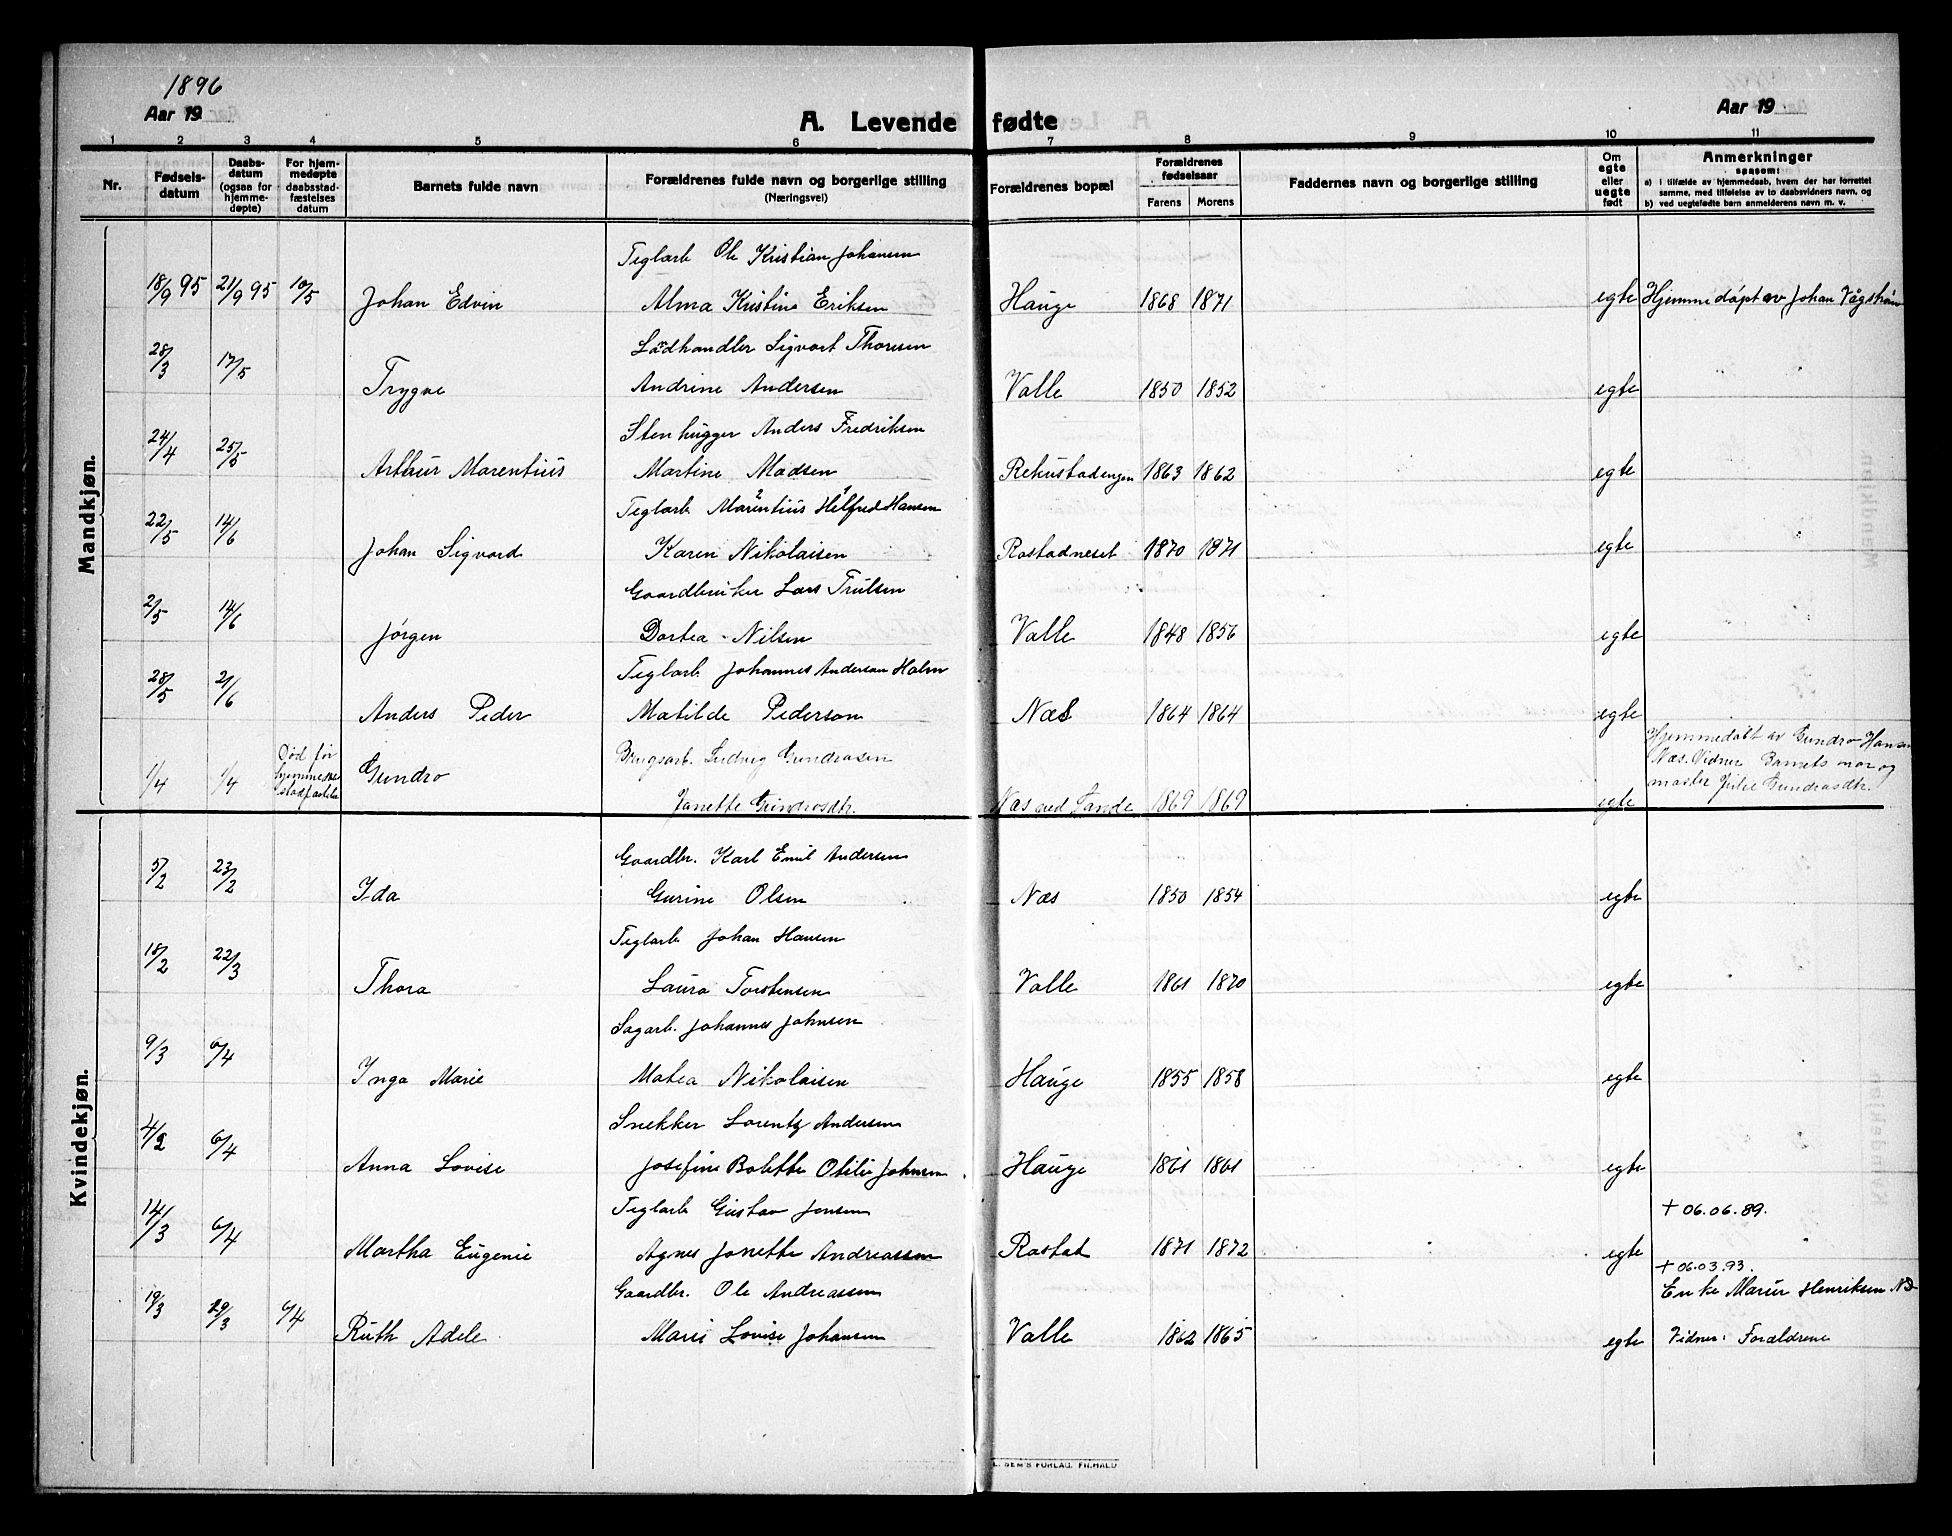 1896
Aar 19
A. Levende fødte
Aar 19
1 2 3 4 5 6 7 8 9 10 11
Nr.
Fødsels-
datum
Daabs-
datum
(ogsaa for
hjemme-
døpte)
For hjem-
medøpte
daabsstad-
fæstelses
datum
Barnets fulde navn
Forældrenes fulde navn og borgerlige stilling
(Næringsvei)
Forældrenes bopæl
Forældrenes
fødselsaar
Farens Morens
Faddernes navn og borgerlige stilling
Om
egte
eller
uegte
født
Anmerkninger
saasom:
a) i tilfælde av hjemmedaab, hvem der har forrettet
samme, med tilføielse av to daabsvidners navn, og
b) ved uegtefødte barn anmelderens navn m. v.
Mandkjøn.
Teglarb Ole Kristian Johansen
18/9 95 21/9 95 10/5 Johan Edvin Alma Kristine Eriksen Hauge 1868 1871 egte Hjemmedøpt av Johan
Ladhandler Sigvart Thoresen
28/3 17/5 Trygve Andrine Andersen Valle 1850 1852 egte
Stenhugger Anders Fredriksen
24/4 25/5 Arthur Marentius Martine Madsen 1863 1862 egte
Teglarb Marentius Helfred Hansen
22/5 14/6 Johan Sigvard Karen Nikolaisen Rostadneset 1870 1871 egte
Gaardbruker Lars Trulsen
2/5 14/6 Jørgen Dortea Nilsen Valle 1848 1856 egte
Teglarb. Johannes Anderson Holm
28/5 21/6 Anders Peder Matilde Pederson Næs 1864 1864 egte
Død før
hjemmedøbt av Gundro Hansen
Brugsarb. Ludvig Gundrosen
1/4 1/4 Gundro Næs. Vidner Barnets mor og
Janette Gundrosdtr. Næs ved Sande 1869 1869 egte moster Julie Gundrosdtr.
Kvindekjøn.
Gaardbr. Karl Emil Andersen
5/2 23/2 Ida Gurine Olsen Næs 1850 1854 egte
Teglarb Johan Hansen
18/2 22/3 Thora Laura Torstensen Valle 1861 1870 egte
Sagarb. Johannes Johnsen
9/3 6/4 Inga Marie Matea Nikolaisen Hauge 1855 1858 egte
Snekker Lorentz Andersen
4/2 6/4 Anna Lovise Josefine Bolette Otilie Johnsen Hauge 1861 1861 egte
Teglarb Gustav Jensen + 06.06.89.
14/3 6/4 Martha Eugenie Agnes Jonette Andreassen Rostad 1871 1872 egte
+ 06.03.93.
Gaardbr. Ole Andreassen Enke Marie Henriksen
19/3 29/3 6/4 Ruth Adele Marie Lovise Johansen Valle 1862 1865 egte Vidner: Forældrene
FORLAG, FR.HALD